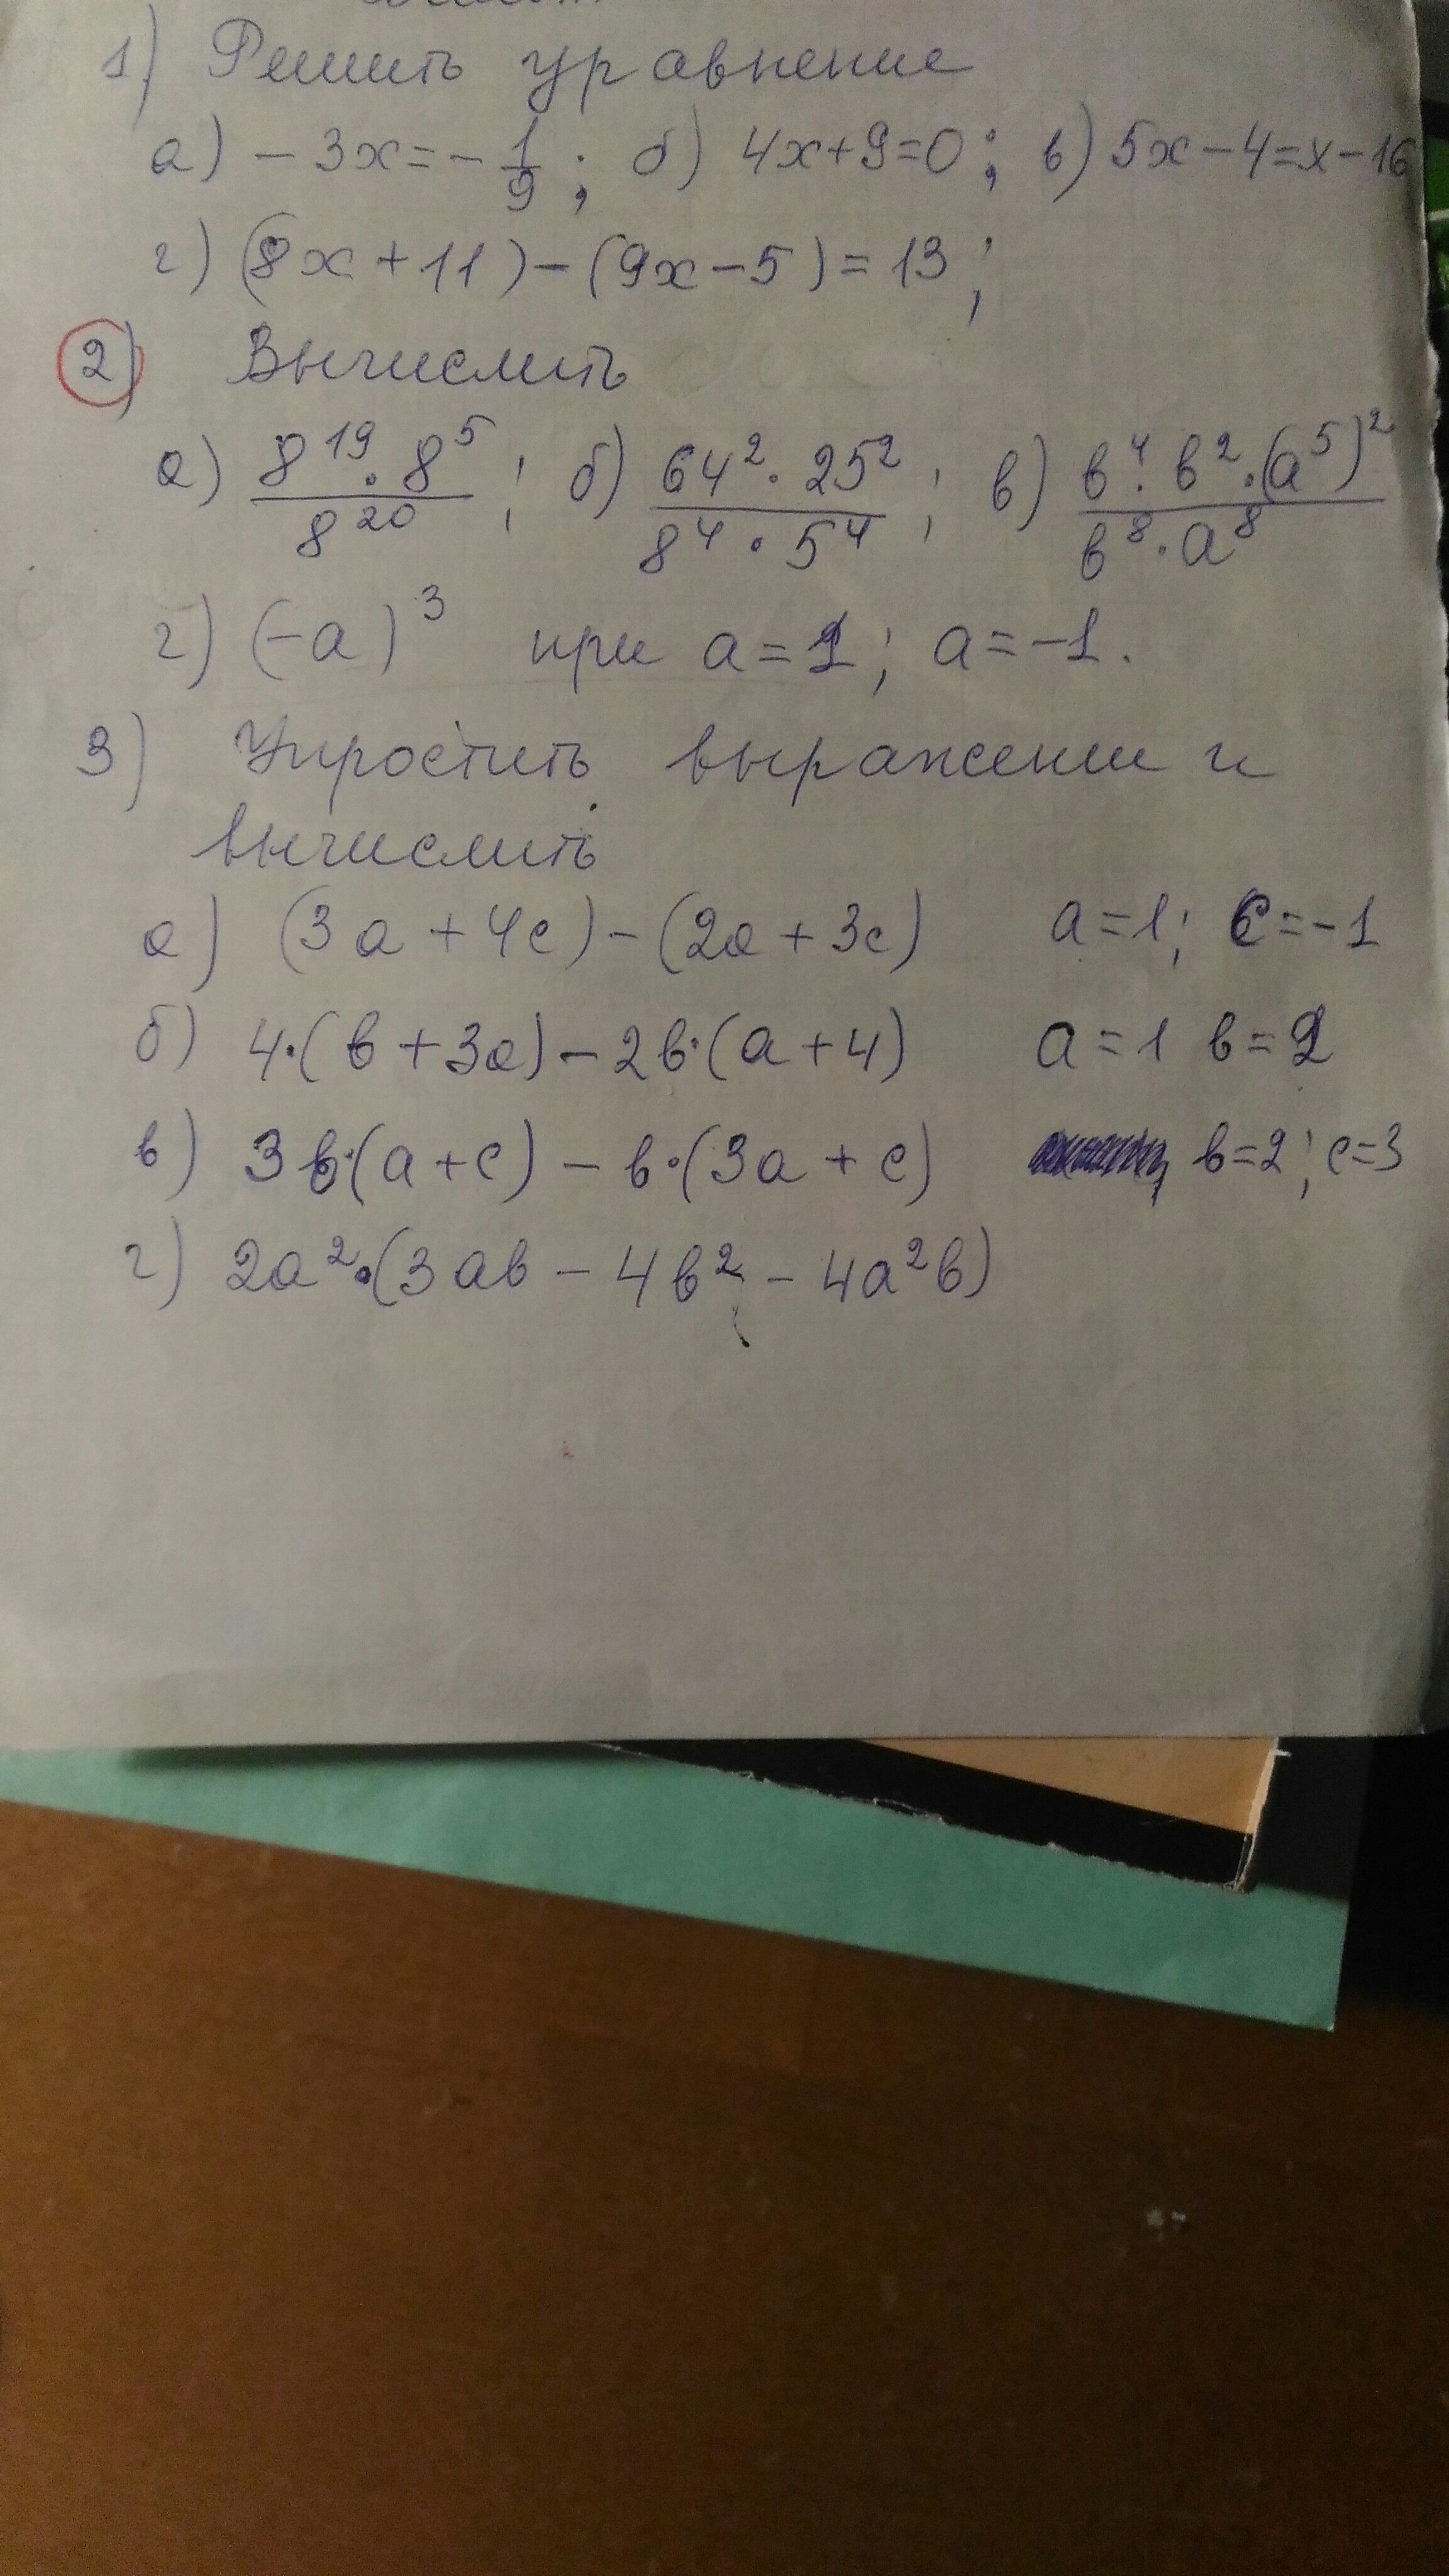 1) Решить уравнение
а) - 3x = - 1/9 ; б) 4x+9=0 ; в) 5x-4=x-16
г) (8x+11)-(9x-5)=13 ;
2) Вычислить
а) 8^19 · 8^5 / 8^20 ; б) 64^2 · 25^2 / 8^4 · 5^4 ; в) в^4 · в^2 · (a^5)^2 / в^8 · a^8
г) (-a)^3 при a= ; a=-1.
3) Упростить выражении и
вычислить
а) (3a+4c)-(2a+3c) a=1; c=-1
б) 4·(в+3a)-2в·(a+4) a=1 в=
в) 3в·(a+c)-в·(3a+c) в=2; c=3
г) 2a^2·(3aв-4в^2-4a^2в)